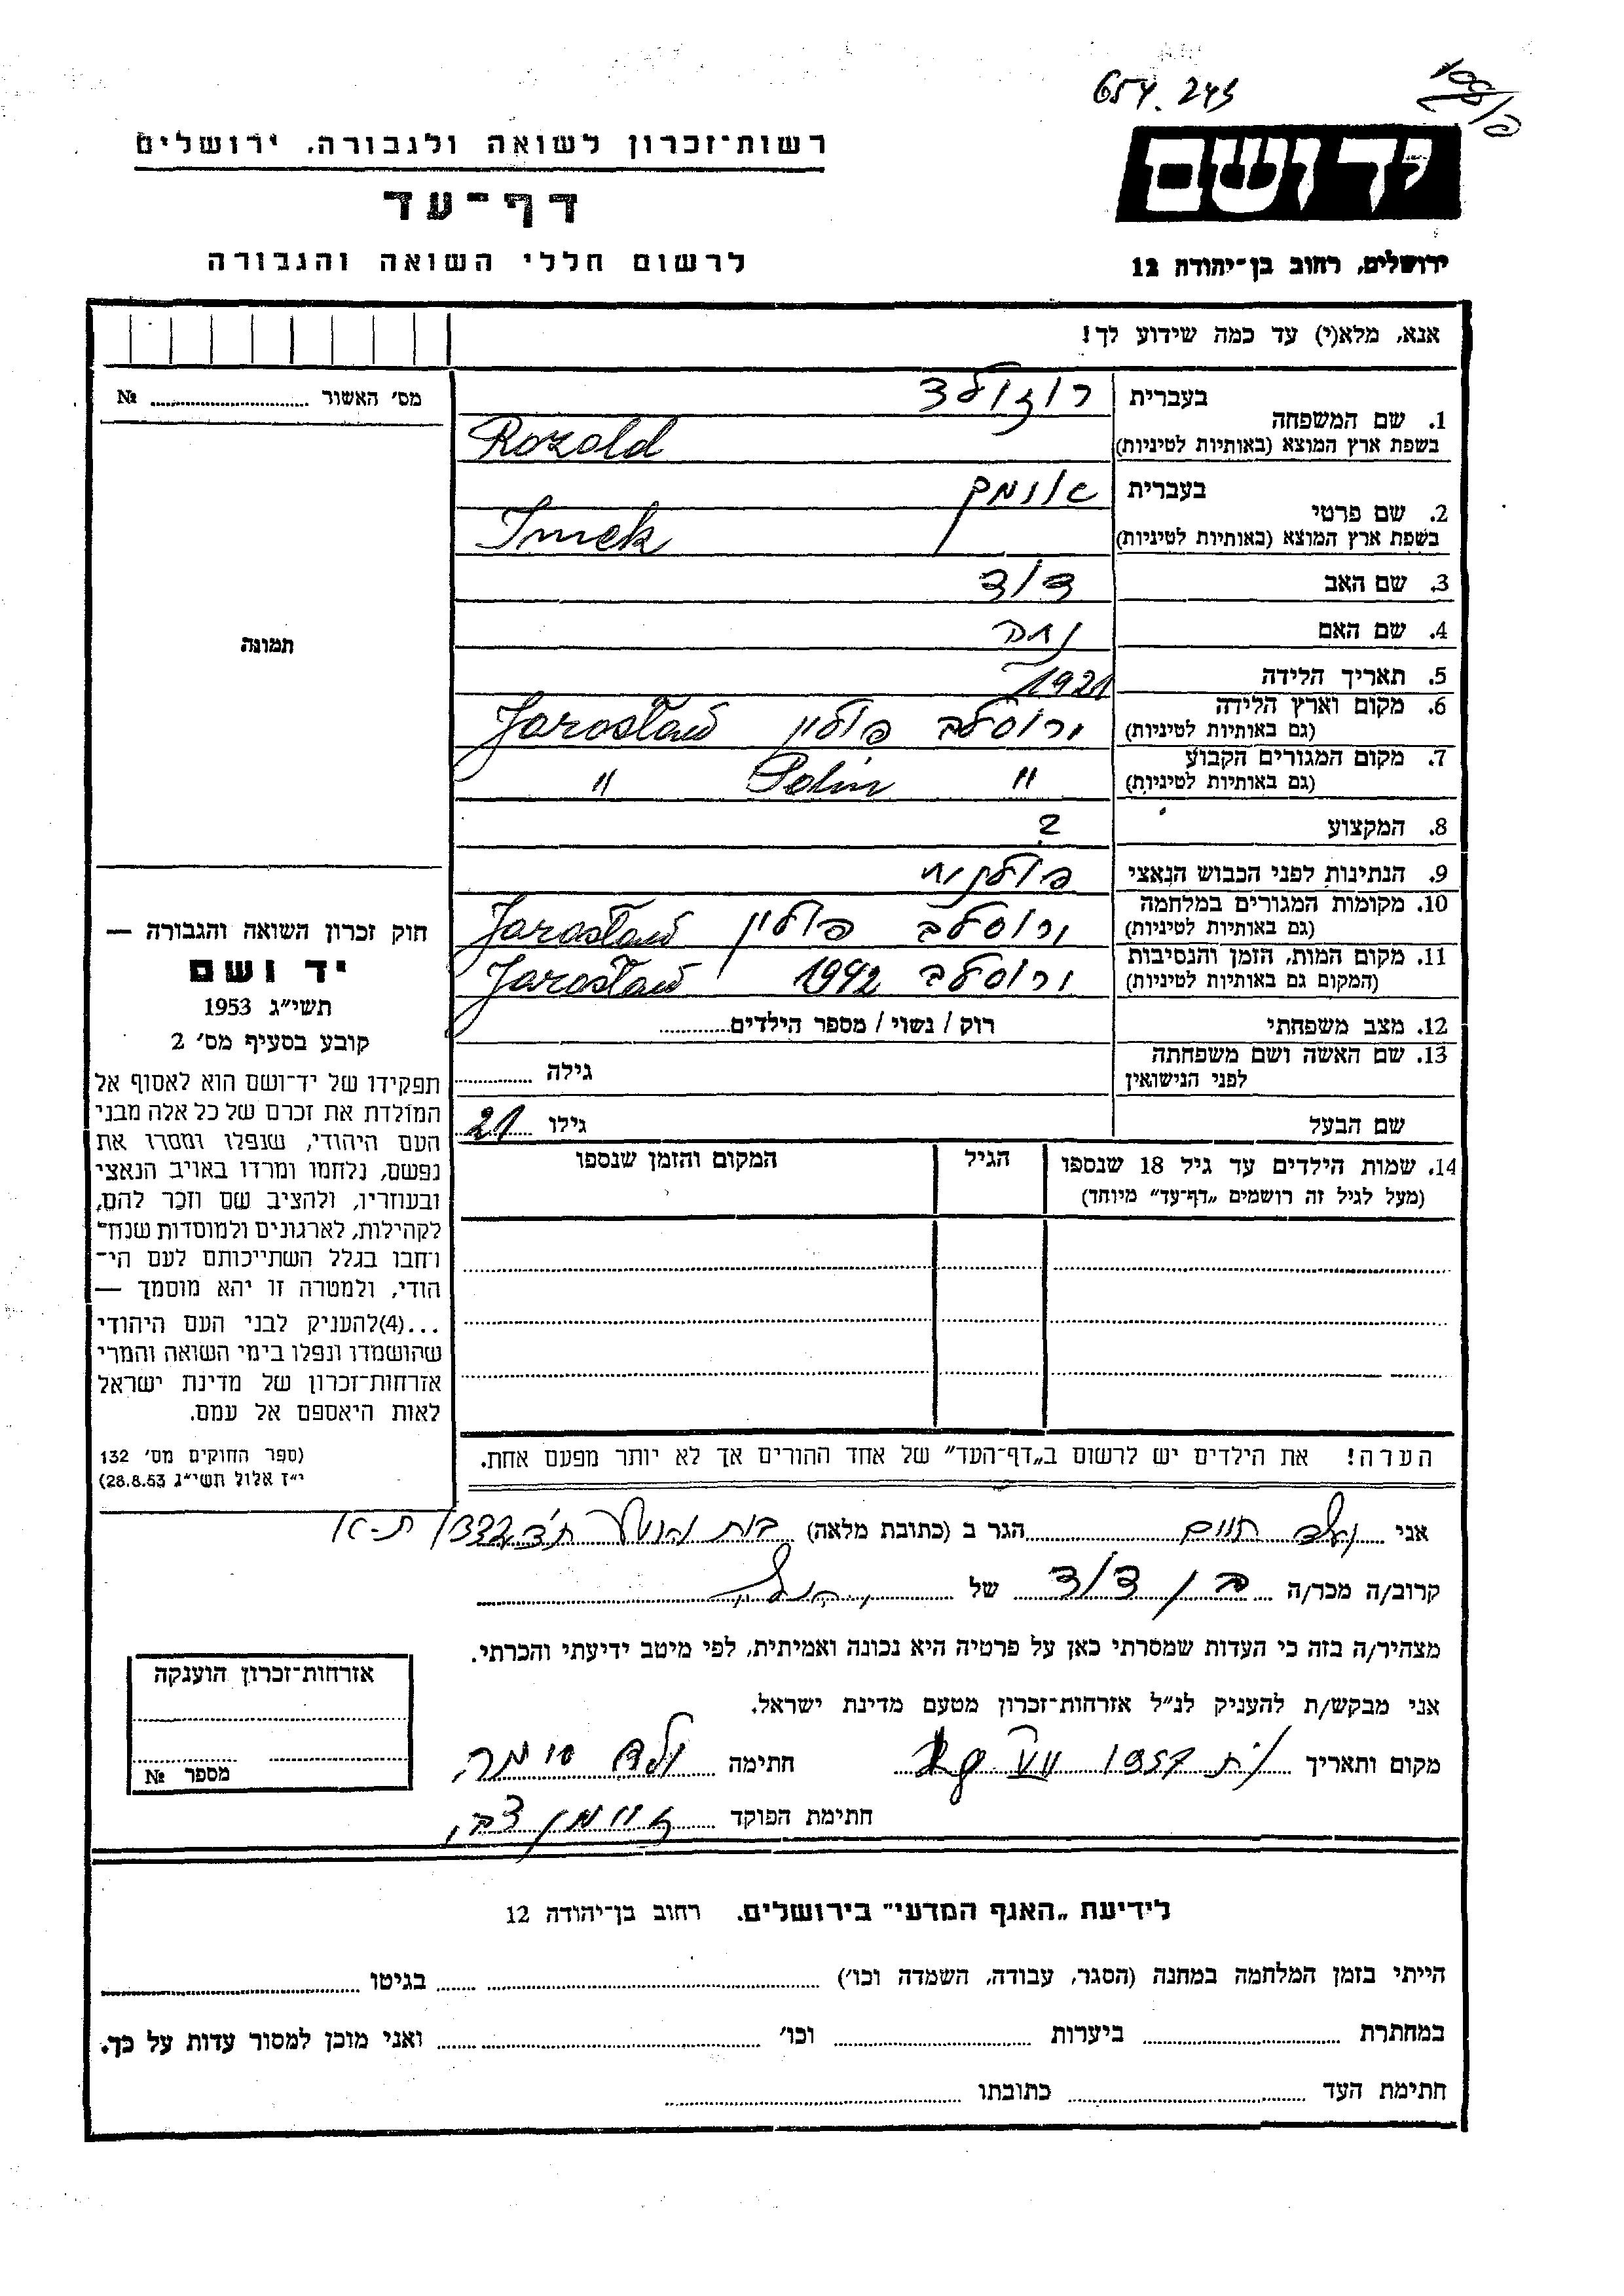 654.243
רשות־זכרון לשואה ולגבורה. ירושלים
דף־עד
לרשום חללי השואה והגבורה
יד ושם
ירושלים, רחוב בן־יהודה 12
אנא, מלא(י) עד כמה שידוע לך!
מס׳ האשור № 
1. שם המשפחה
בעברית רוזולד
בשפת ארץ המוצא (באותיות לטיניות) Rozold
2. שם פרטי
בעברית אימק
בשפת ארץ המוצא (באותיות לטיניות) Imek
3. שם האב דוד
4. שם האם
5. תאריך הלידה 1921
6. מקום וארץ הלידה
(גם באותיות לטיניות) ירוסלב פולין Jarosław
7. מקום המגורים הקבוע
(גם באותיות לטיניות) " Polin "
8. המקצוע ?
9. הנתינות לפני הכבוש הנאצי פולקית
10. מקומות המגורים במלחמה
(גם באותיות לטיניות) ירוסלב פולין Jarosław
11. מקום המות, הזמן והנסיבות
(המקום גם באותיות לטיניות) ירוסלב 1942 Jarosław
12. מצב משפחתי רוק / נשוי / מספר הילדים
13. שם האשה ושם משפחתה
לפני הנישואין גילה
שם הבעל גילו 21
14. שמות הילדים עד גיל 18 שנספו הגיל המקום והזמן שנספו
(מעל לגיל זה רושמים „דף־עד” מיוחד)
הערה! את הילדים יש לרשום ב„דף־העד” של אחד ההורים אך לא יותר מפעם אחת.
תמונה
חוק זכרון השואה והגבורה —
יד ושם
תשי״ג 1953
קובע בסעיף מס׳ 2
תפקידו של יד־ושם הוא לאסוף אל
המולדת את זכרם של כל אלה מבני
העם היהודי, שנפלו ומסרו את
נפשם, נלחמו ומרדו באויב הנאצי
ובעוזריו, ולהציב שם וזכר להם,
לקהילות, לארגונים ולמוסדות שנח־
רחבו בגלל השתייכותם לעם הי־
הודי, ולמטרה זו יהא מוסמך —
...(4) להעניק לבני העם היהודי
שהושמדו ונפלו בימי השואה והמרי
אזרחות־זכרון של מדינת ישראל
לאות היאספם אל עמם.
(ספר החוקים מס׳ 132
י״ז אלול תשי״ג 28.8.53)
אני חיים הגר ב (כתובת מלאה) בית ת-א
קרוב/ה מכר/ה בן דוד של
מצהיר/ה בזה כי העדות שמסרתי כאן על פרטיה היא נכונה ואמיתית, לפי מיטב ידיעתי והכרתי.
אני מבקש/ת להעניק לנ״ל אזרחות־זכרון מטעם מדינת ישראל.
מקום ותאריך 1957 חתימה ולד סימה
חתימת הפוקד
אזרחות־זכרון הוענקה
מספר №
לידיעת „האגף המדעי” בירושלים. רחוב בן־יהודה 12
הייתי בזמן המלחמה במחנה (הסגר, עבודה, השמדה וכו׳) בגיטו
במחתרת ביערות וכו׳ ואני מוכן למסור עדות על כך.
חתימת העד כתובתו